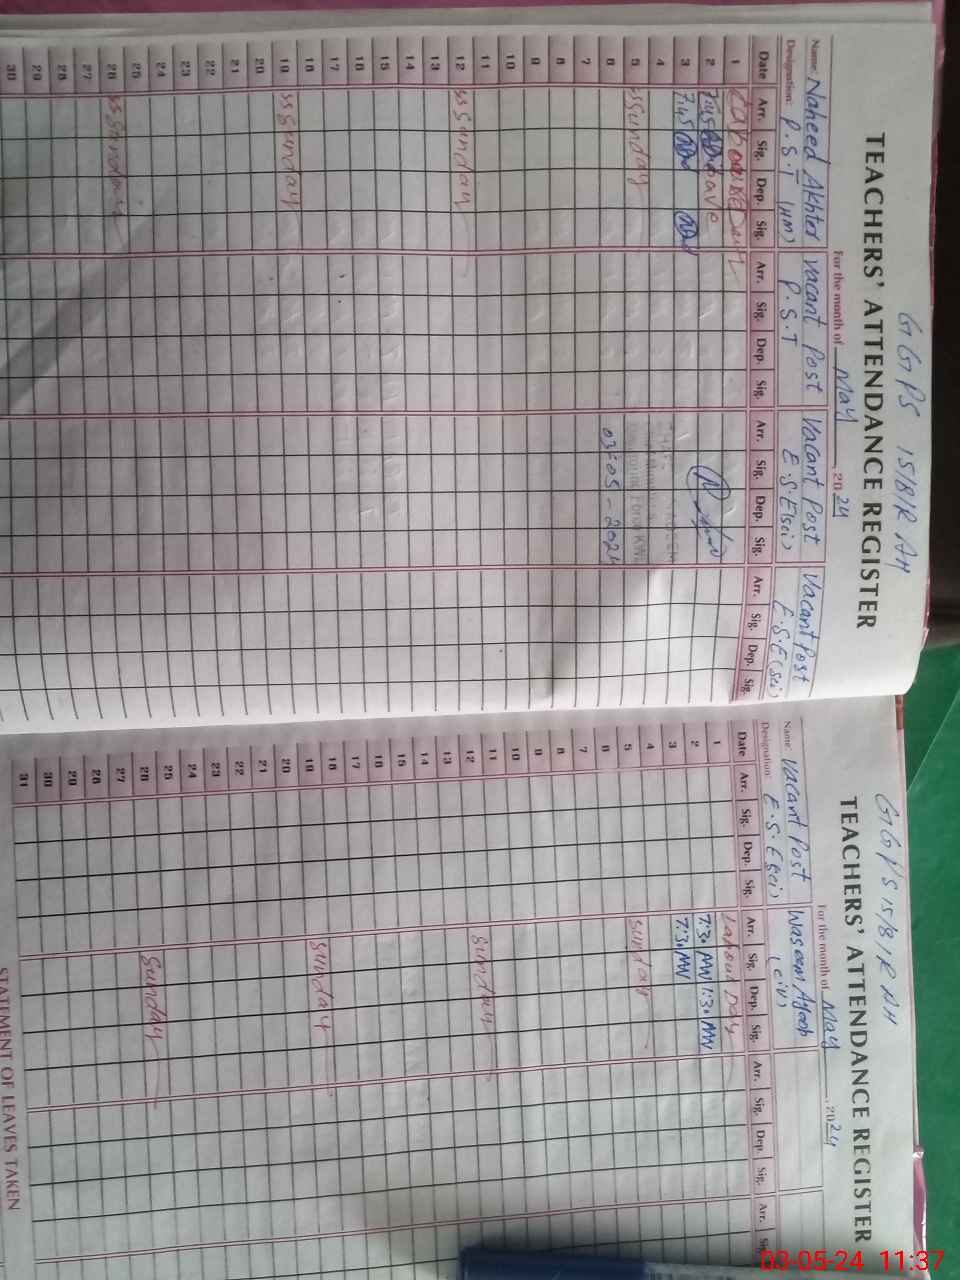 GGPS 15/8/R AH
TEACHERS' ATTENDANCE REGISTER
For the month of May, 2024
Name: Naheed Akhter Vacant Post Vacant Post Vacant Post
Designation: P.S.T (HM) P.S.T E.S.E(sci) E.S.E(sci)
Date Arr. Sig. Dep. Sig. Arr. Sig. Dep. Sig. Arr. Sig. Dep. Sig. Arr. Sig. Dep. Sig.
1 Labour Day
2 7:45
3 7:45
4
5 Sunday
6 03-05-2024
7
8
9
10
11
12 Sunday
13
14
15
16
17
18
19 Sunday
20
21
22
23
24
25
26 Sunday
27
28
29
30
GGPS 15/8/R AH
TEACHERS' ATTENDANCE REGISTER
For the month of May, 2024
Name: Vacant Post Waseem Ayoob
Designation: E.S.E(sci) (civ)
Date Arr. Sig. Dep. Sig. Arr. Sig. Dep. Sig. Arr. Sig. Dep. Sig. Arr.
1 Labour Day
2 7:30 MW 1:30 MW
3 7:30 MW
4
5 Sunday
6
7
8
9
10
11
12 Sunday
13
14
15
16
17
18
19 Sunday
20
21
22
23
24
25
26 Sunday
27
28
29
30
31
STATEMENT OF LEAVES TAKEN
03-05-24 11:37